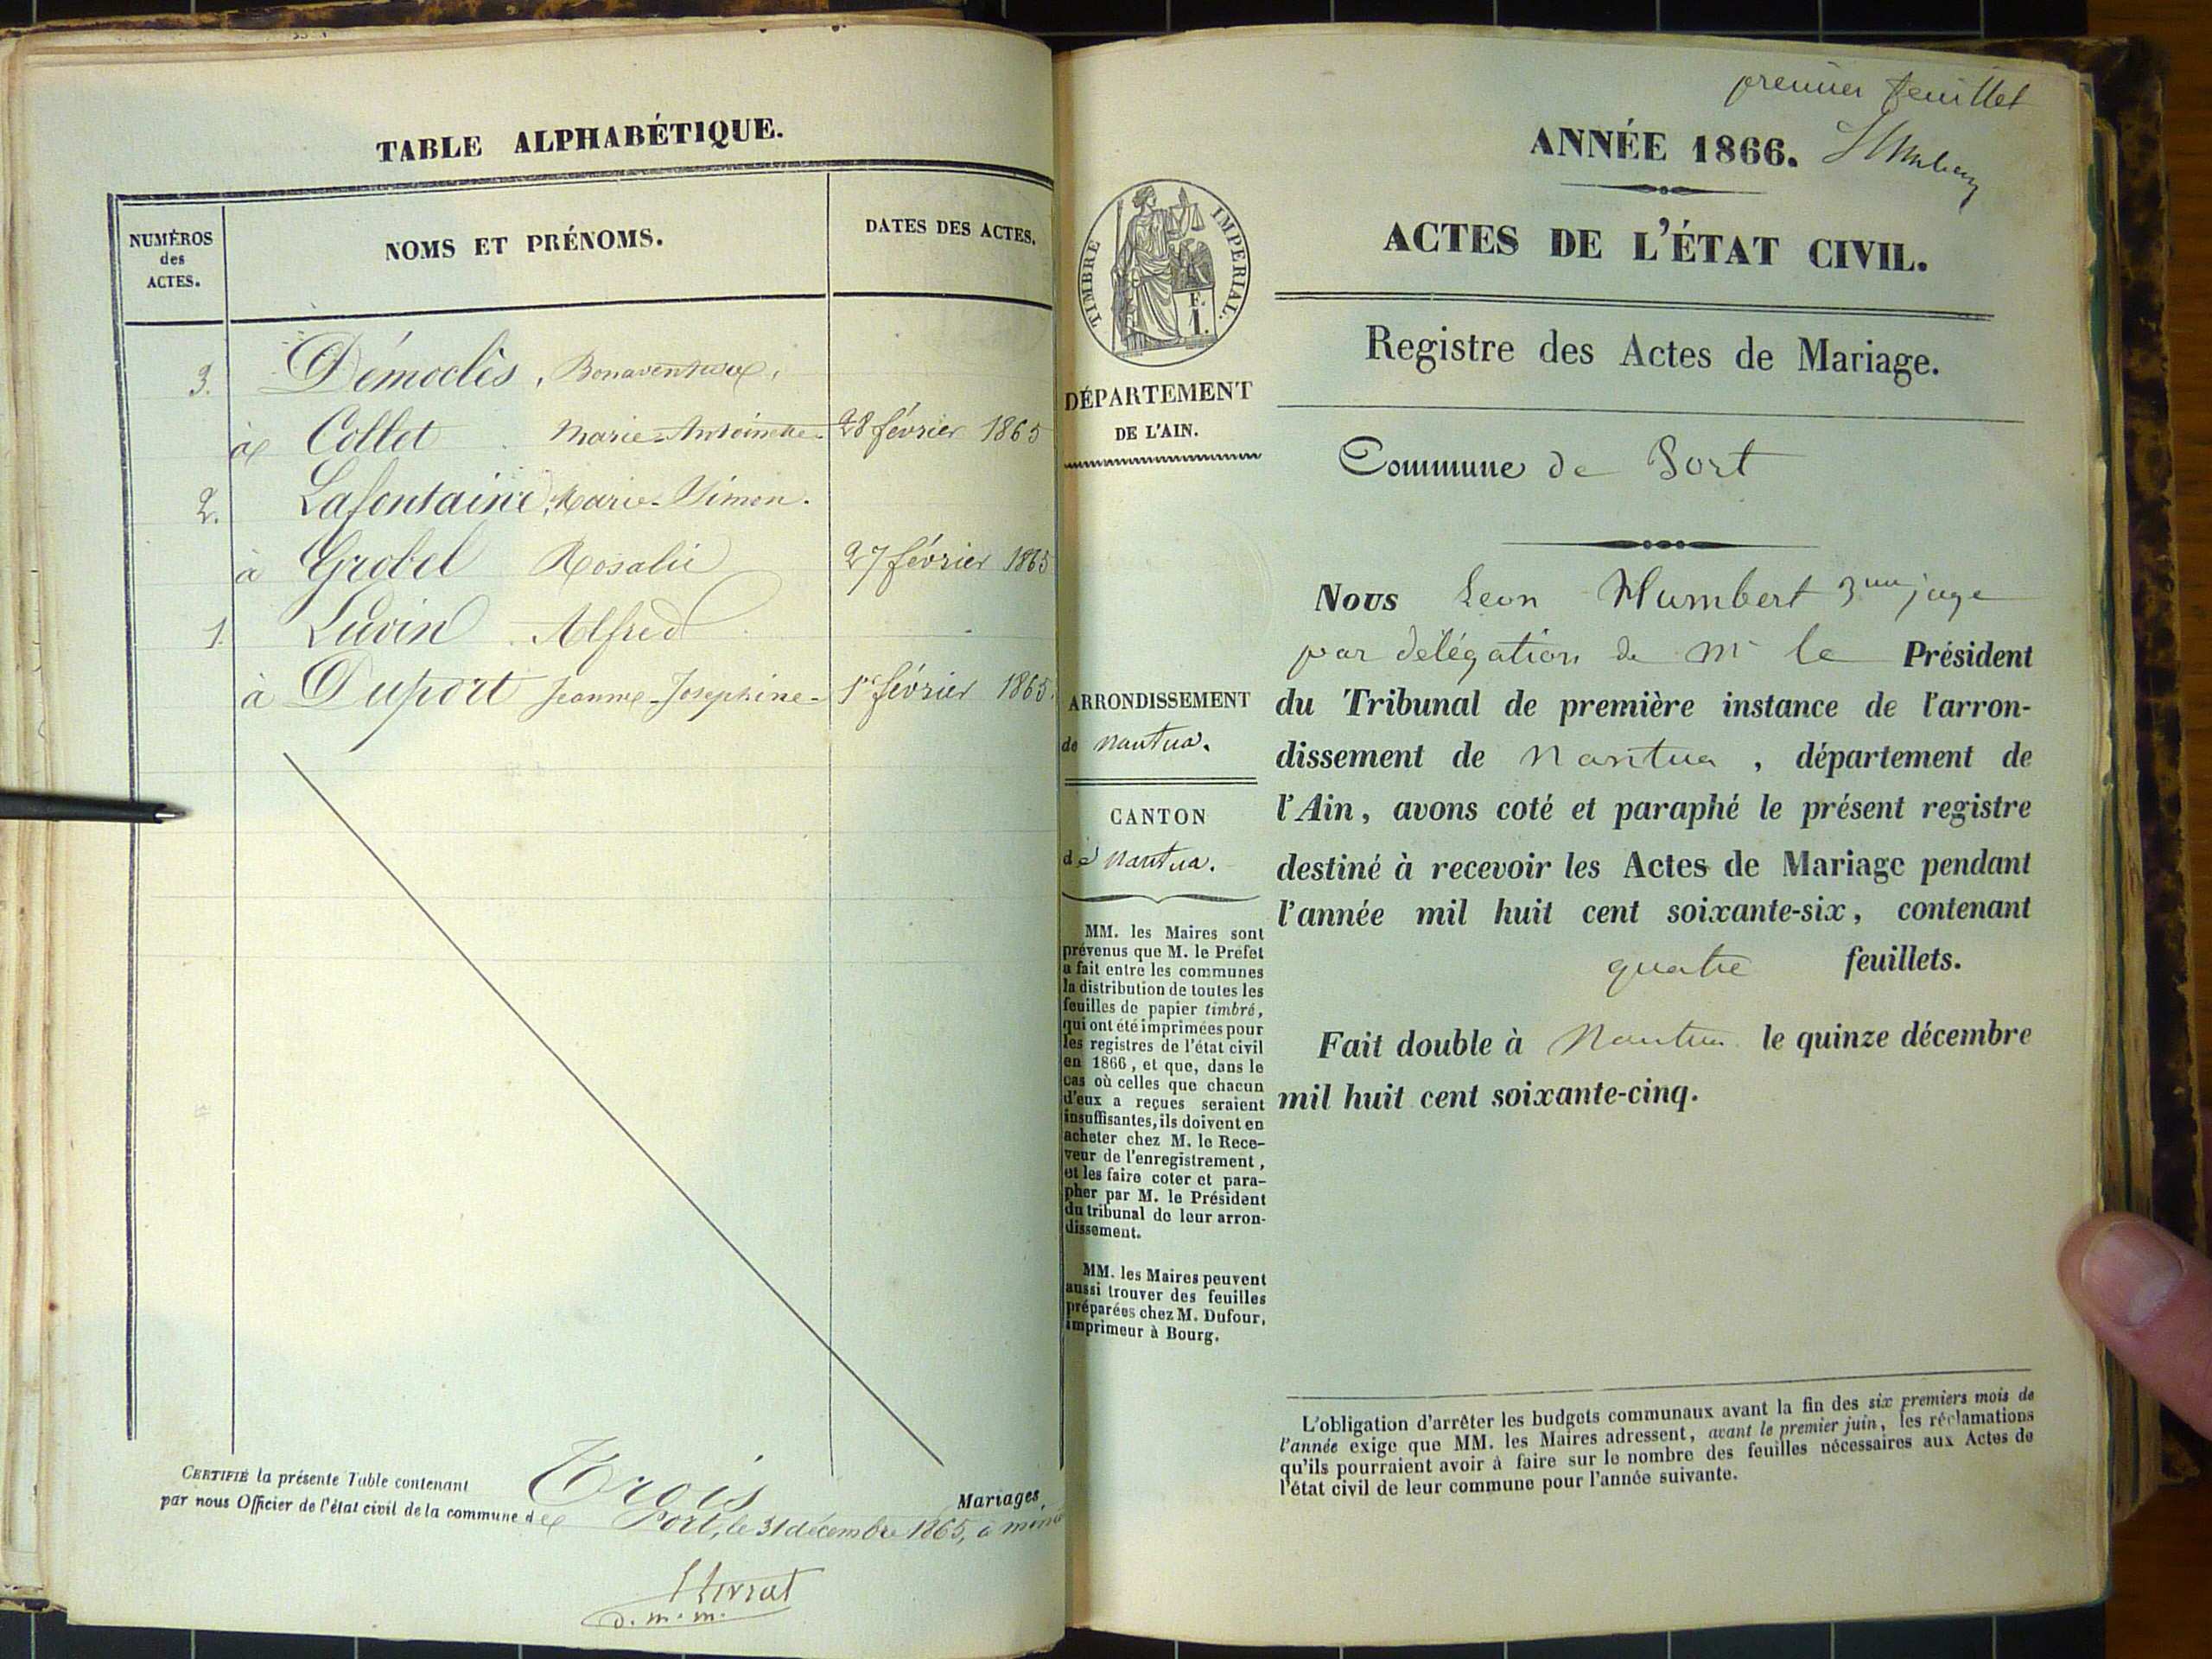 TABLE ALPHABÉTIQUE.
NUMÉROS
des
ACTES.
NOMS ET PRÉNOMS.
DATES DES ACTES.
3. Démoclès, Bonaventure,
à Collet Marie-Antoinette. 28 février 1865
2. Lafontaine, Marie-Simon.
à Grobel Rosalie 27 février 1865
1. Luvin Alfred
à Duport Jeanne-Josephine- 1er février 1865.
CERTIFIÉ la présente Table contenant Trois Mariages,
par nous Officier de l'état civil de la commune de Port, le 31 décembre 1865, à
d. m. m.
premier feuillet
ANNÉE 1866.
ACTES DE L'ÉTAT CIVIL.
Registre des Actes de Mariage.
Commune de Port
TIMBRE IMPERIAL.
F.
1.
DÉPARTEMENT
DE L'AIN.
ARRONDISSEMENT
de Nantua.
CANTON
de Nantua.
MM. les Maires sont
prévenus que M. le Préfet
a fait entre les communes
la distribution de toutes les
feuilles de papier timbré,
qui ont été imprimées pour
les registres de l'état civil
en 1866, et que, dans le
cas où celles que chacun
d'eux a reçues seraient
insuffisantes, ils doivent en
acheter chez M. le Rece-
veur de l'enregistrement,
et les faire coter et para-
pher par M. le Président
du tribunal de leur arron-
dissement.
MM. les Maires peuvent
aussi trouver des feuilles
préparées chez M. Dufour,
imprimeur à Bourg.
Nous Leon Humbert 3me juge
par délégation de Mr le Président
du Tribunal de première instance de l'arron-
dissement de Nantua, département de
l'Ain, avons coté et paraphé le présent registre
destiné à recevoir les Actes de Mariage pendant
l'année mil huit cent soixante-six, contenant
quatre feuillets.
Fait double à Nantua le quinze décembre
mil huit cent soixante-cinq.
L'obligation d'arrêter les budgets communaux avant la fin des six premiers mois de
l'année exige que MM. les Maires adressent, avant le premier juin, les réclamations
qu'ils pourraient avoir à faire sur le nombre des feuilles nécessaires aux Actes de
l'état civil de leur commune pour l'année suivante.